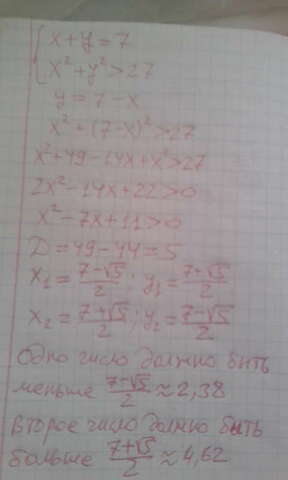 { x + y = 7
x² + y² > 27
y = 7 - x
x² + (7-x)² > 27
x² + 49 - 14x + x² > 27
2x² - 14x + 22 > 0
x² - 7x + 11 > 0
D = 49 - 44 = 5
x₁ = (7-√5)/2 ; y₁ = (7+√5)/2
x₂ = (7+√5)/2 ; y₂ = (7-√5)/2
Одно число должно быть
меньше (7-√5)/2 ≈ 2,38
Второе число должно быть
больше (7+√5)/2 ≈ 4,62